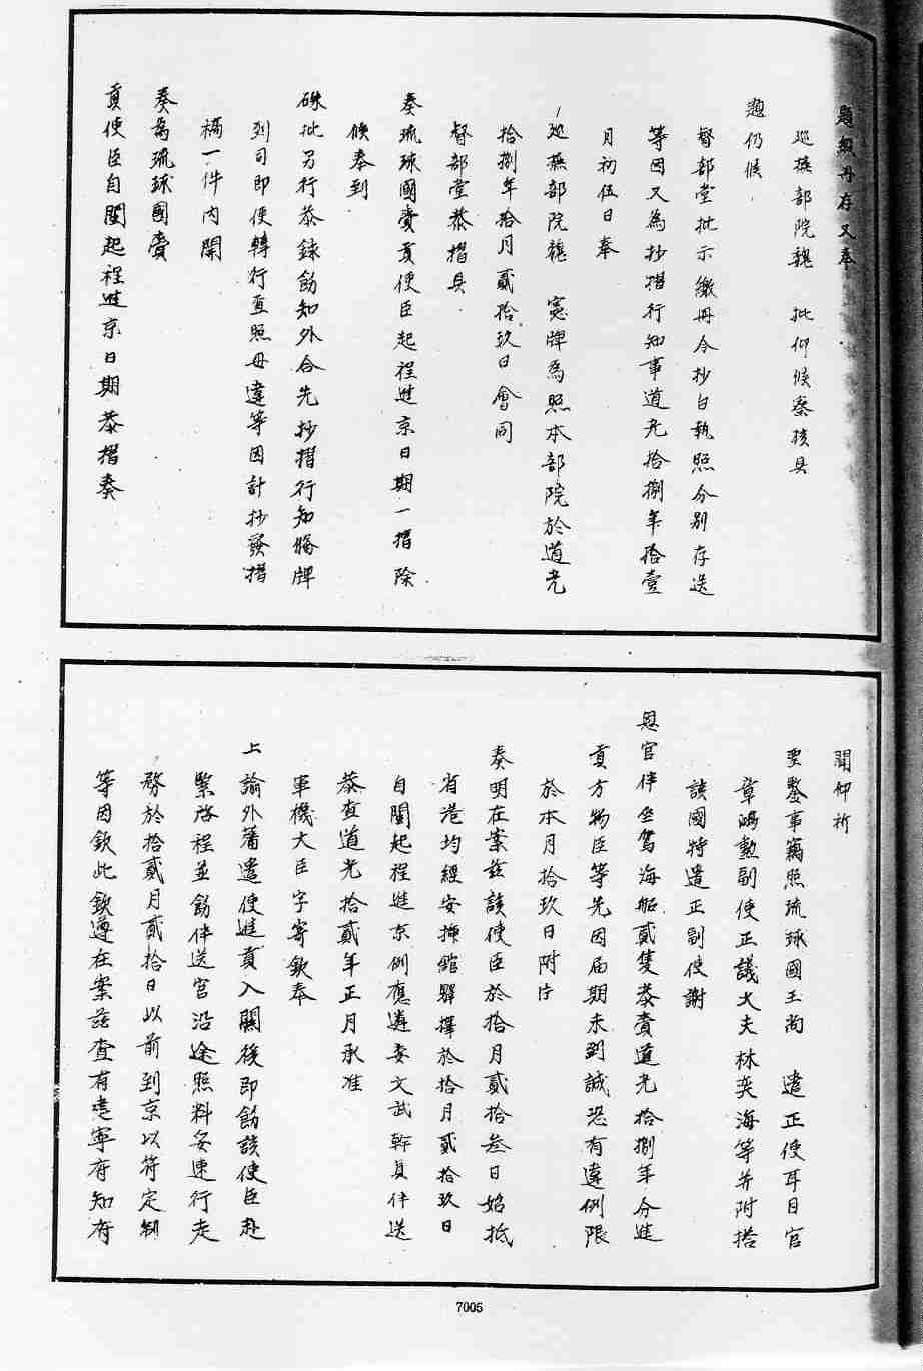 題繳冊存又奉
巡撫部院魏　批仰候察核具
題仍候
督部堂批示繳冊今抄白執照分別存送
等因又為抄摺行知事道光拾捌年拾壹
月初伍日奉
巡撫部院魏　憲牌爲照本部院於道光
拾捌年拾月貳拾玖日會同
督部堂恭摺具
奏琉球國賫貢使臣起程進京日期一摺除
候奉到
硃批另行恭錄飭知外合先抄摺行知備牌
到司即便轉行查照毋違等因計抄發摺
稿一件內開
奏為琉球國賫
貢使臣自閩起程進京日期恭摺奏
聞仰祈
聖鑒事竊照琉球國王尚　遣正使耳目官
章鴻勲副使正議大夫林奕海等并附搭
該國特遣正副使謝
恩官伴坐駕海船貳隻恭賫道光拾捌年分進
貢方物臣等先因届期未到誠恐有違例限
於本月拾玖日附片
奏明在案兹該使臣於拾月貳拾叁日始抵
省港均經安插館驛擇於拾月貳拾玖日
自閩起程進京例應遴委文武幹員伴送
恭查道光拾貳年正月承准
軍機大臣字寄欽奉
上諭外藩遣使進貢入關後即飭該使臣赴
緊啓程並飭伴送官沿途照料妥速行走
務於拾貳月貳拾日以前到京以符定制
等因欽此欽遵在案兹查有建寧府知府
7005